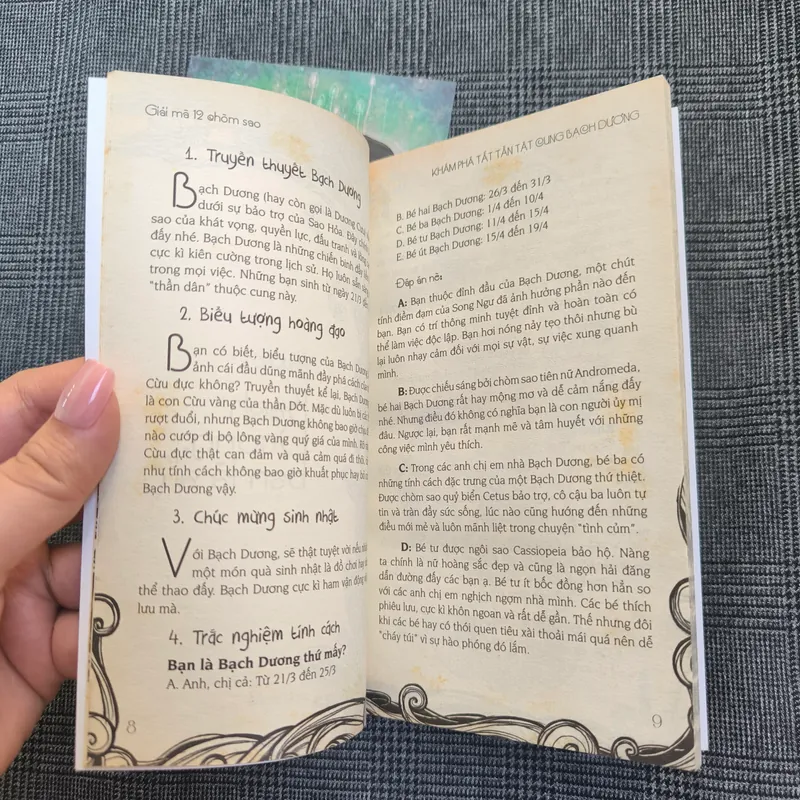 Giải mã 12 chòm sao
1. Truyền thuyết Bạch Dương
Bạch Dương (hay còn gọi là Dương Cưu)
dưới sự bảo trợ của Sao Hỏa. Đây
sao của khát vọng, quyền lực, đấu tranh và
đấy nhé. Bạch Dương là những chiến binh đầy
cực kì kiên cường trong lịch sử. Họ luôn sẵn
trong mọi việc. Những bạn sinh từ ngày 21/3 đến
"thần dân" thuộc cung này.
2. Biểu tượng hoàng đạo
Bạn có biết, biểu tượng của Bạch Dương
ảnh cái đầu dũng mãnh đầy phá cách của
Cừu đực không? Truyền thuyết kể lại, Bạch Dương
là con Cừu vàng của thần Dớt. Mặc dù luôn bị các
rượt đuổi, nhưng Bạch Dương không bao giờ chịu
nào cướp đi bộ lông vàng quý giá của mình.
Cừu đực thật can đảm và quả cảm quá đi thôi,
như tính cách không bao giờ khuất phục hay bỏ
Bạch Dương vậy.
3. Chúc mừng sinh nhật
Với Bạch Dương, sẽ thật tuyệt vời nếu nhận
một món quà sinh nhật là đồ chơi hay
thể thao đấy. Bạch Dương cực kì ham vận động
lưu mà.
4. Trắc nghiệm tính cách
Bạn là Bạch Dương thứ mấy?
A. Anh, chị cả: Từ 21/3 đến 25/3
8
KHÁM PHÁ TẤT TẦN TẬT CUNG BẠCH DƯƠNG
B. Bé hai Bạch Dương: 26/3 đến 31/3
C. Bé ba Bạch Dương: 1/4 đến 10/4
D. Bé tư Bạch Dương: 11/4 đến 15/4
E. Bé út Bạch Dương: 15/4 đến 19/4
Đáp án nè:
A: Bạn thuộc đỉnh đầu của Bạch Dương, một chút
tính điềm đạm của Song Ngư đã ảnh hưởng phần nào đến
bạn. Bạn có trí thông minh tuyệt đỉnh và hoàn toàn có
thể làm việc độc lập. Bạn hơi nóng nảy tẹo thôi nhưng bù
lại luôn nhạy cảm đối với mọi sự vật, sự việc xung quanh
mình.
B: Được chiếu sáng bởi chòm sao tiên nữ Andromeda,
bé hai Bạch Dương rất hay mộng mơ và dễ cảm nắng đấy
nhé. Nhưng điều đó không có nghĩa bạn là con người ủy mị
đâu. Ngược lại, bạn rất mạnh mẽ và tâm huyết với những
công việc mình yêu thích.
C: Trong các anh chị em nhà Bạch Dương, bé ba có
những tính cách đặc trưng của một Bạch Dương thứ thiệt.
Được chòm sao quỷ biển Cetus bảo trợ, cô cậu ba luôn tự
tin và tràn đầy sức sống, lúc nào cũng hướng đến những
điều mới mẻ và luôn mãnh liệt trong chuyện "tình củm".
D: Bé tư được ngôi sao Cassiopeia bảo hộ. Nàng
ta chính là nữ hoàng sắc đẹp và cũng là ngọn hải đăng
dẫn đường đấy các bạn ạ. Bé tư ít bốc đồng hơn hẳn so
với các anh chị em nghịch ngợm nhà mình. Các bé thích
phiêu lưu, cực kì khôn ngoan và rất dễ gần. Thế nhưng đôi
khi các bé hay có thói quen tiêu xài thoải mái quá nên dễ
"cháy túi" vì sự hào phóng đó lắm.
9